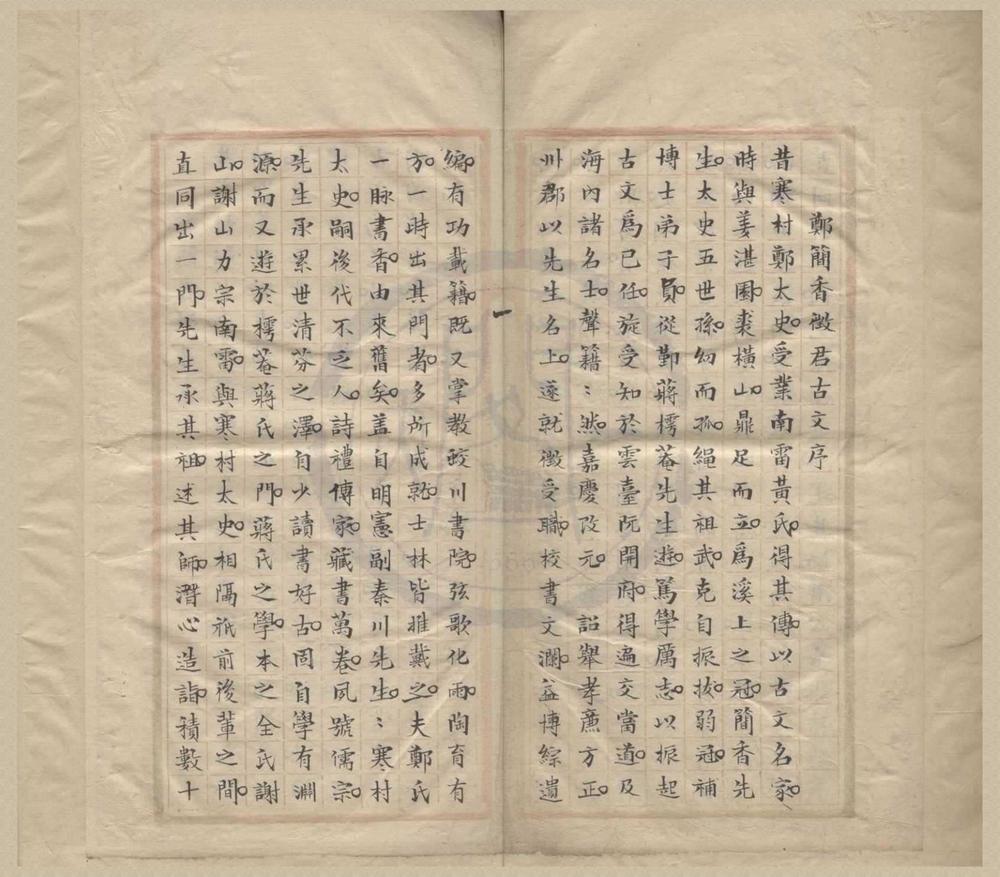 鄭簡香徵君古文序
昔寒村鄭太史受業南雷黃氏得其傳以古文名家
時與姜湛園裘橫山鼎足而立為溪上之冠簡香先
生太史五世孫幼而孤繩其祖武克自振拔弱冠補
博士弟子員從鄞蔣樗菴先生遊篤學厲志以振起
古文爲己任旋受知於雲臺阮開府得遍交當道及
海內諸名士聲籍〻然嘉慶改元詔舉孝廉方正
州郡以先生名上遂就徵受職校書文瀾益博綜遺
編有功載籍既又掌教蛟川書院弦歌化雨陶育有
方一時出其門者多所成就士林皆推戴之夫鄭氏
一脉書香由來舊矣蓋自明憲副秦川先生〻寒村
太史嗣後代不乏人詩禮傳家藏書萬卷夙號儒宗
先生承累世清芬之澤自少讀書好古固自學有淵
源而又遊於樗菴蔣氏之門蔣氏之學本之全氏謝
山謝山力宗南雷與寒村太史相隔祇前後輩之間
直同出一門先生承其祖述其師潛心造詣積數十
一